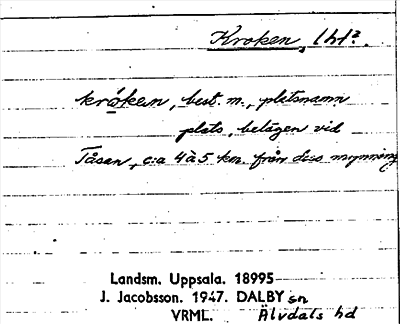 Kroken, lht?.
króken, best. m., platsnamn
plats, belägen vid
Tåsan, c:a 4 à 5 km. från dess mynning
Landsm. Uppsala. 18995
J. Jacobsson. 1947. DALBY sn
VRML. Älvdals hd